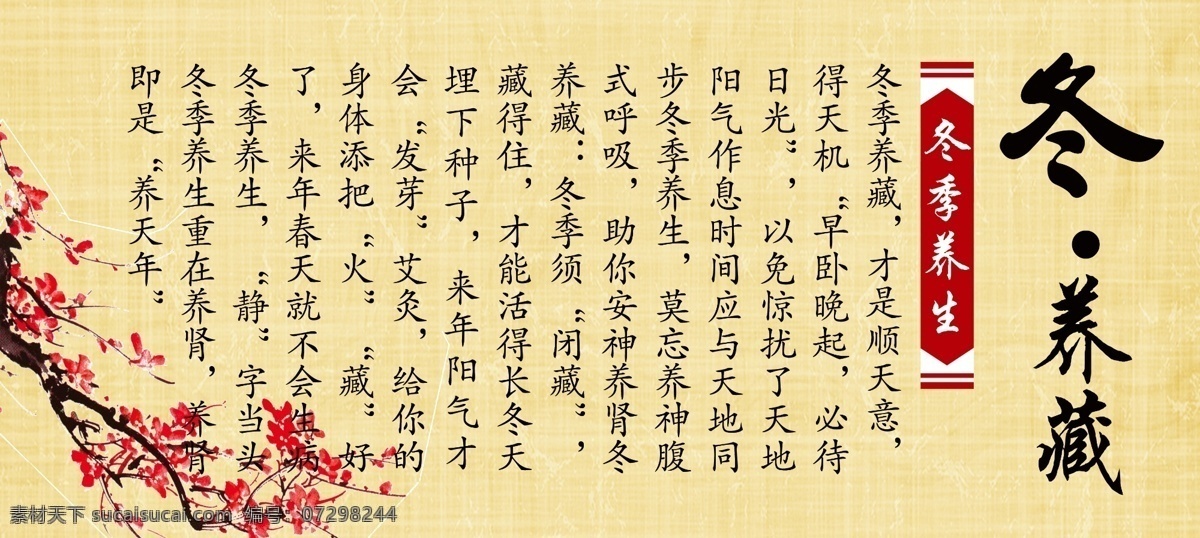 冬·养藏
冬季养生
冬季养藏，才是顺天意，
得天机“早卧晚起，必待
日光”，以免惊扰了天地
阳气作息时间应与天地同
步冬季养生，莫忘养神腹
式呼吸，助你安神养肾冬
养藏：冬季须“闭藏”，
藏得住，才能活得长冬天
埋下种子，来年阳气才
会“发芽”艾灸，给你的
身体添把“火”“藏”好
了，来年春天就不会生病
冬季养生，“静”字当头
冬季养生重在养肾，养肾
即是“养天年”
素材天下 sucaisucai.com 编号：07298244